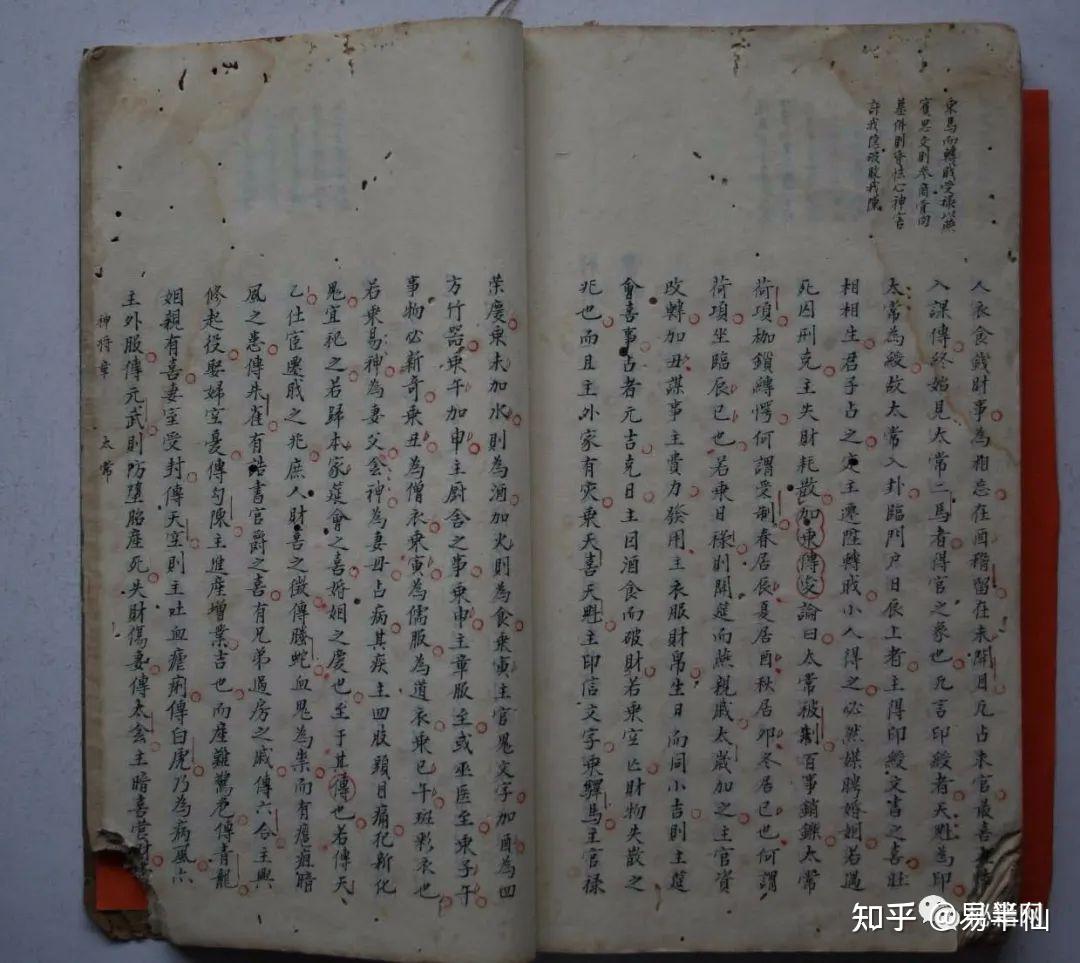 乘馬而轉職受祿以燕
賓思交則參商骨肉
墓併則奇怪心神害
許我隱破敗我陳
人衣食錢財事為相忘在酉稽留在未開目凡占求官最喜
入課傳終始見太常二馬者得官之象也凡言印綬者天魁為印
太常為綬故太常入卦臨門戶日辰上者主得印綬文書之喜旺
相相生君子占之主遷陞轉職小人得之必然媒聘婚姻若遇
死囚刑克主失財耗散加乘傳變論曰太常被制百事銷鑠太常
荷項枷鎖縛愕何謂受制春居辰夏居酉秋居卯冬居巳也何謂
荷項坐臨辰巳也若乘日祿則開筵而燕親戚太歲加之主官資
改轉加丑謀事主費力發用主衣服財帛生日而同小吉則主筵
會喜事占者元吉克日主因酒食而破財若乘空亡財物失散之
兆也而且主外家有災乘天喜天魁主印信文字乘驛馬主官祿
榮慶乘未加水則為酒加火則為食乘寅主官鬼文字加酉為四
方竹器乘午加申主廚舍之事乘申主章服至或巫醫至乘子午
事物必新奇乘丑為僧衣乘寅為儒服為道衣乘巳午班彩衣也
若乘易神為妻父陰神為妻母占病其疾主四肢頭目痛祀新化
鬼宜祀之若歸本家筵會之喜婚姻之慶也至于其傳也若傳天
乙仕宦遷職之兆庶人財喜之徵傳騰蛇血鬼為祟而有瘧疽暗
風之患傳朱雀有誥書官爵之喜有兄弟過房之戚傳六合主興
修起役娶婦室憂傳勾陳主進產增業吉也而產難驚危傳青龍
姻親有喜妻室受封傳天空則主吐血瘧痢傳白虎乃為病風六
主外服傳元武則防墮胎產死失財傷妻傳太陰主暗喜
神將章　太常
知乎 @易半仙